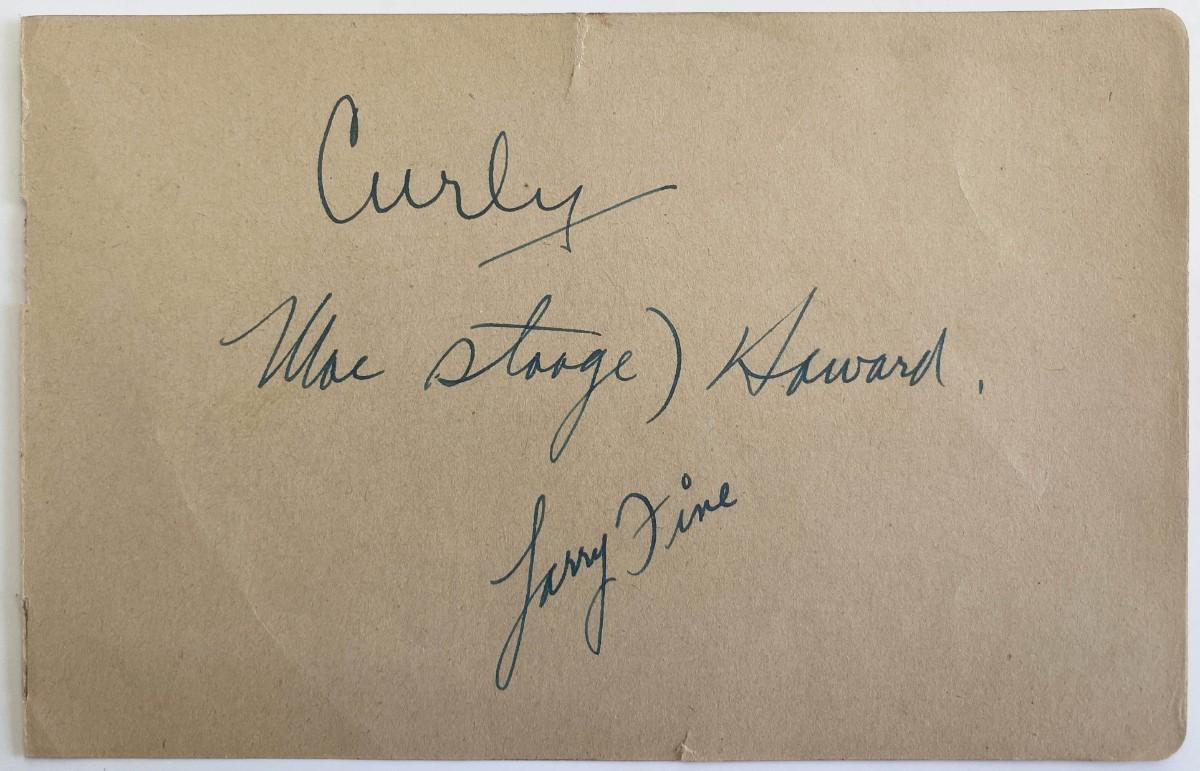 Curly
Moe stooge) Howard.
Larry Fine